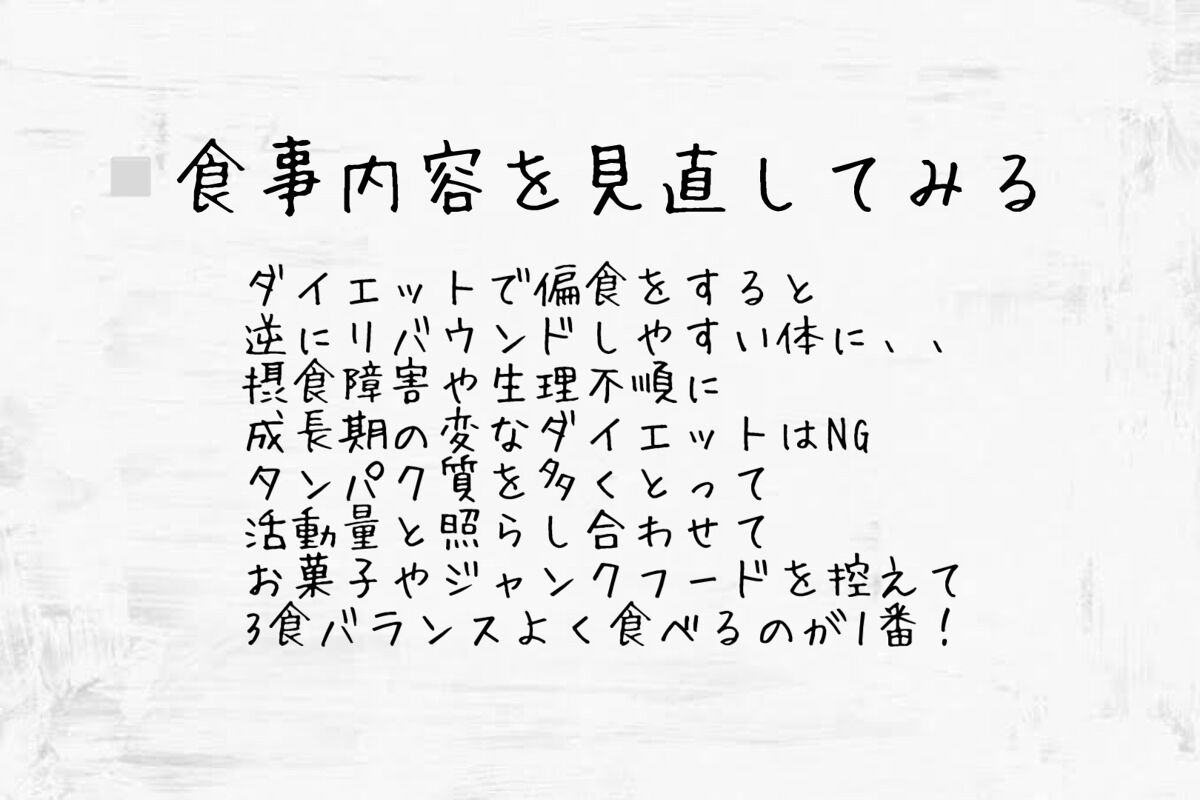 食事内容を見直してみる
ダイエットで偏食をすると
逆にリバウンドしやすい体に、、
摂食障害や生理不順に
成長期の変なダイエットはNG
タンパク質を多くとって
活動量と照らし合わせて
お菓子やジャンクフードを控えて
3食バランスよく食べるのが1番！